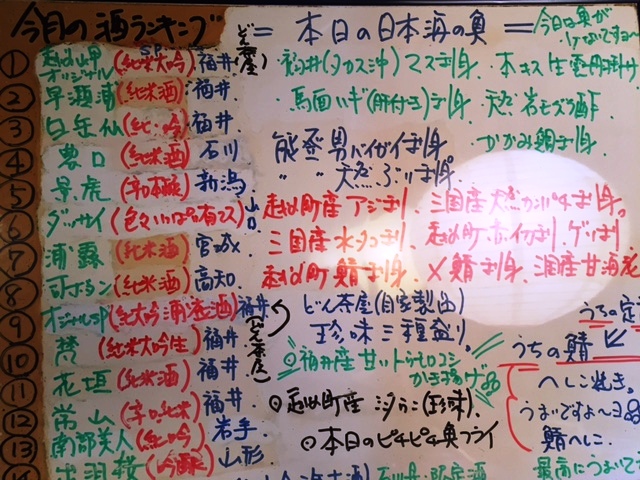 今月の酒ランキング
① オリジナル SP (純米大吟) 福井 どん茶屋
② 早瀬浦 (純米酒) 福井
③ 白岳仙 (純・吟) 福井
④ 農口 (純米酒) 石川
⑤ 景虎 新潟
⑥ ダッサイ (色々いっぱい有マス) 山口
⑦ 浦霞 (純米酒) 宮城
⑧ (純米酒) 高知
⑨ オリジナルSP (純大吟 福井 (どん茶屋)
⑩ 梵 (純米大吟生) 福井
⑪ 花垣 (純米酒) 福井
⑫ 常山 (辛口純米) 福井
⑬ 南部美人 (純吟) 岩手
出羽桜 (吟醸) 山形
= 本日の日本海の魚 =
今日は魚が
福井(タカス沖) マス刺身 ・本キス生
・馬面ハギ(肝付き)刺身 天然岩モズク酢
能登男バイガイ刺身 ・かがみ鯛刺身
〃 〃 天然ぶり刺身
越前町産 アジ刺、三国産天然カンパチ刺身。
三国産水タコ刺、越前町 ホタルイカ刺、ゲソ刺
越前町 鯖刺身 〆鯖刺身、
どん茶屋(自家製の)
珍味三種盛り。
◎福井産甘いトウモロコシ
かき揚げ
◎越前町産 汐うに(珍味)
◎本日のピチピチ魚フライ
うちの定
うちの鯖
へしこ焼き。
うまいですよへヨ
鯖へしこ。
最高にうまいで
限定酒